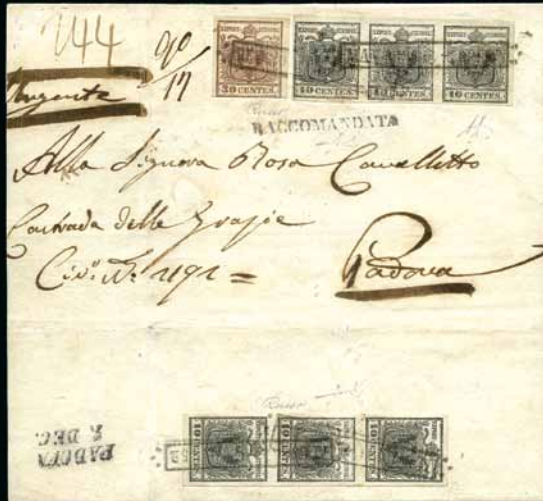 144
90
/17
Urgente
30 CENTES. 10 CENTES. 10 CENTES. 10 CENTES.
RACCOMANDATA
Alla Signora Rosa Cavalletto
Contrada delle Grazie
Civ: N: 4191 =
Padova
10 CENTES 10 CENTES 10 CENTES
PADOVA
DEC.